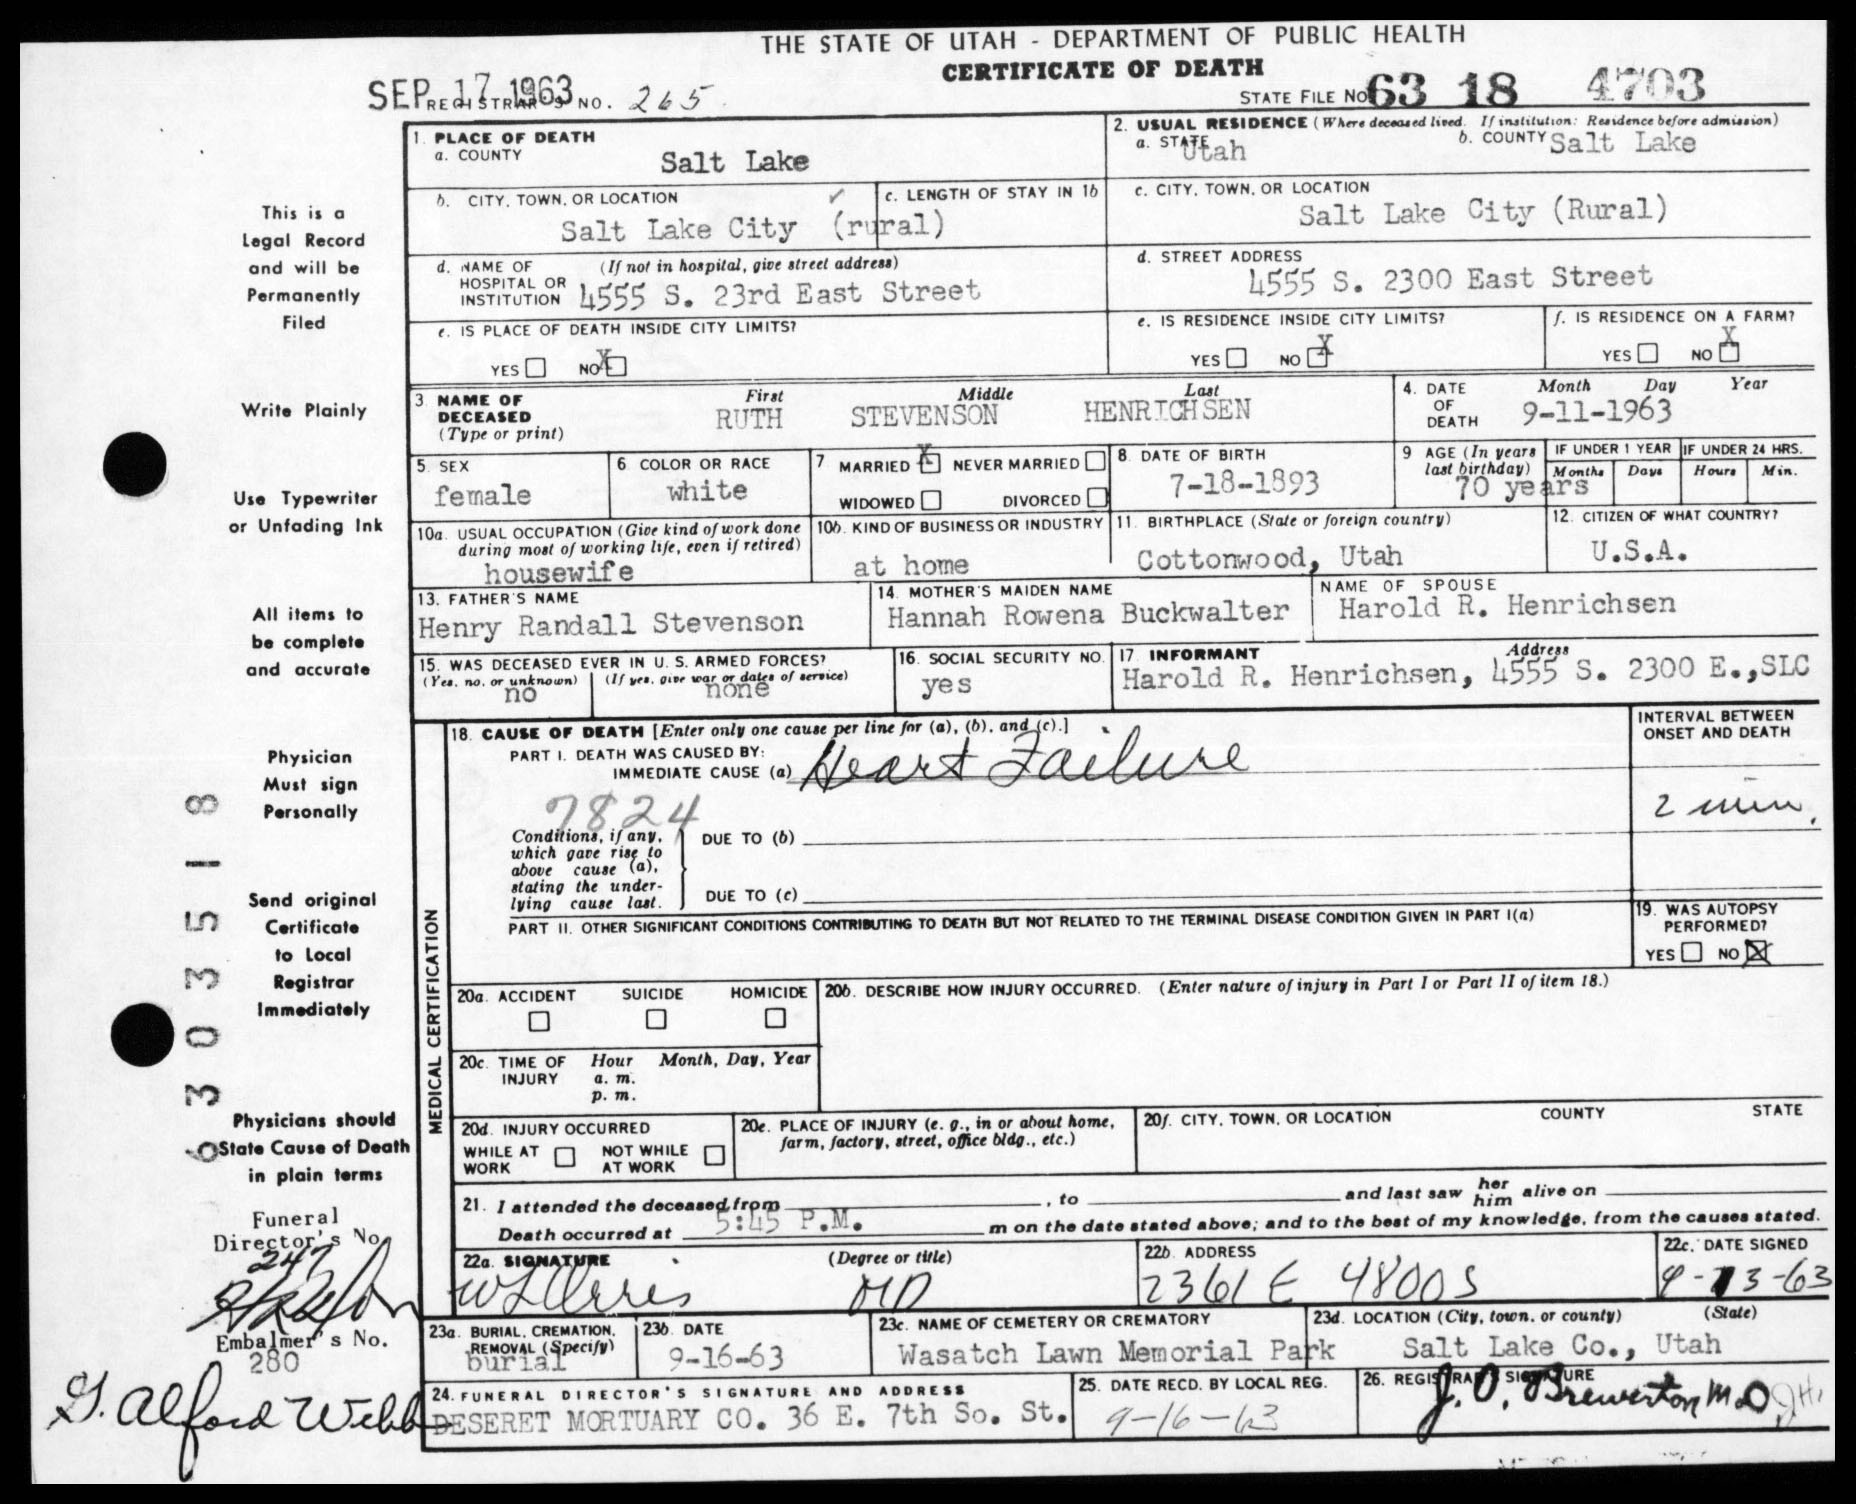 THE STATE OF UTAH - DEPARTMENT OF PUBLIC HEALTH
CERTIFICATE OF DEATH
SEP 17 1963
REGISTRAR'S NO. 265
STATE FILE NO. 63 18 4703
1. PLACE OF DEATH
a. COUNTY
Salt Lake
2. USUAL RESIDENCE (Where deceased lived. If institution: Residence before admission)
a. STATE Utah
b. COUNTY Salt Lake
b. CITY, TOWN, OR LOCATION
Salt Lake City (rural)
c. LENGTH OF STAY IN 1b
c. CITY, TOWN, OR LOCATION
Salt Lake City (Rural)
d. NAME OF HOSPITAL OR INSTITUTION (If not in hospital, give street address)
4555 S. 23rd East Street
d. STREET ADDRESS
4555 S. 2300 East Street
e. IS PLACE OF DEATH INSIDE CITY LIMITS?
YES NO X
e. IS RESIDENCE INSIDE CITY LIMITS?
YES NO X
f. IS RESIDENCE ON A FARM?
YES NO X
3. NAME OF DECEASED (Type or print)
First Middle Last
RUTH STEVENSON HENRICHSEN
4. DATE OF DEATH
Month Day Year
9-11-1963
5. SEX
female
6. COLOR OR RACE
white
7. MARRIED X NEVER MARRIED
WIDOWED DIVORCED
8. DATE OF BIRTH
7-18-1893
9. AGE (In years last birthday)
70 years
IF UNDER 1 YEAR
Months Days
IF UNDER 24 HRS.
Hours Min.
10a. USUAL OCCUPATION (Give kind of work done during most of working life, even if retired)
housewife
10b. KIND OF BUSINESS OR INDUSTRY
at home
11. BIRTHPLACE (State or foreign country)
Cottonwood, Utah
12. CITIZEN OF WHAT COUNTRY?
U.S.A.
13. FATHER'S NAME
Henry Randall Stevenson
14. MOTHER'S MAIDEN NAME
Hannah Rowena Buckwalter
NAME OF SPOUSE
Harold R. Henrichsen
15. WAS DECEASED EVER IN U. S. ARMED FORCES?
(Yes, no, or unknown) (If yes, give war or dates of service)
no none
16. SOCIAL SECURITY NO.
yes
17. INFORMANT Address
Harold R. Henrichsen, 4555 S. 2300 E.,SLC
MEDICAL CERTIFICATION
18. CAUSE OF DEATH [Enter only one cause per line for (a), (b), and (c).]
PART I. DEATH WAS CAUSED BY:
IMMEDIATE CAUSE (a) Heart Failure
INTERVAL BETWEEN ONSET AND DEATH
2 min.
7824
Conditions, if any, which gave rise to above cause (a), stating the underlying cause last.
DUE TO (b)
DUE TO (c)
PART II. OTHER SIGNIFICANT CONDITIONS CONTRIBUTING TO DEATH BUT NOT RELATED TO THE TERMINAL DISEASE CONDITION GIVEN IN PART I(a)
19. WAS AUTOPSY PERFORMED?
YES NO X
20a. ACCIDENT SUICIDE HOMICIDE
20b. DESCRIBE HOW INJURY OCCURRED. (Enter nature of injury in Part I or Part II of item 18.)
20c. TIME OF INJURY Hour Month, Day, Year
a. m.
p. m.
20d. INJURY OCCURRED
WHILE AT WORK NOT WHILE AT WORK
20e. PLACE OF INJURY (e. g., in or about home, farm, factory, street, office bldg., etc.)
20f. CITY, TOWN, OR LOCATION COUNTY STATE
21. I attended the deceased from , to and last saw her him alive on
Death occurred at 5:45 P.M. m on the date stated above; and to the best of my knowledge, from the causes stated.
22a. SIGNATURE (Degree or title)
MD
22b. ADDRESS
2361 E 4800 S
22c. DATE SIGNED
9-13-63
23a. BURIAL, CREMATION, REMOVAL (Specify)
burial
23b. DATE
9-16-63
23c. NAME OF CEMETERY OR CREMATORY
Wasatch Lawn Memorial Park
23d. LOCATION (City, town, or county) (State)
Salt Lake Co., Utah
24. FUNERAL DIRECTOR'S SIGNATURE AND ADDRESS
DESERET MORTUARY CO. 36 E. 7th So. St.
25. DATE RECD. BY LOCAL REG.
9-16-63
26. REGISTRAR'S SIGNATURE
J. O. Brewerton M.D
This is a
Legal Record
and will be
Permanently
Filed
Write Plainly
Use Typewriter
or Unfading Ink
All items to
be complete
and accurate
Physician
Must sign
Personally
Send original
Certificate
to Local
Registrar
Immediately
Physicians should
State Cause of Death
in plain terms
6303518
Funeral
Director's No.
247
Embalmer's No.
280
G. Alford Webb